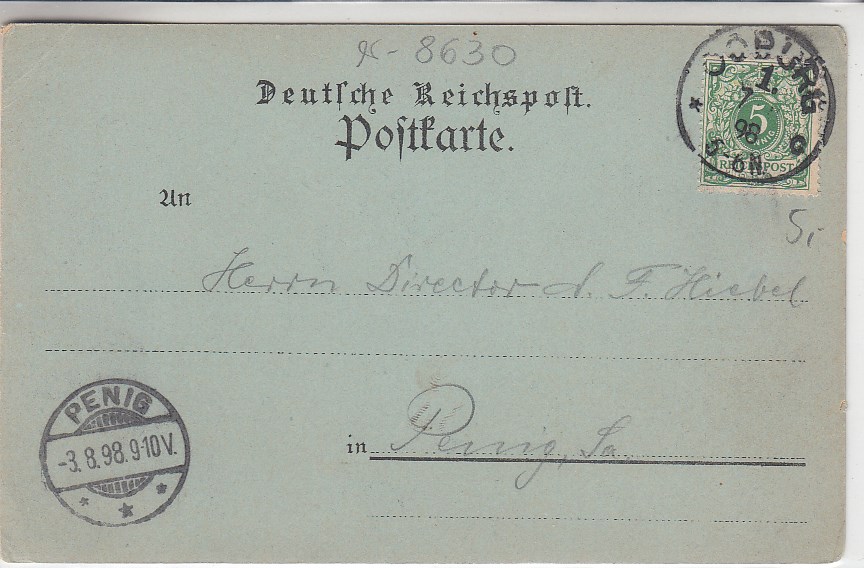 8630
Deutsche Reichspost.
Postkarte.
COBURG
1.
98
5-6N.
5
PFENNIG
REICHSPOST
5,-
An
Herrn Director A. F. Hiebel
PENIG
-3.8.98.9-10V.
in Penig, Sa.